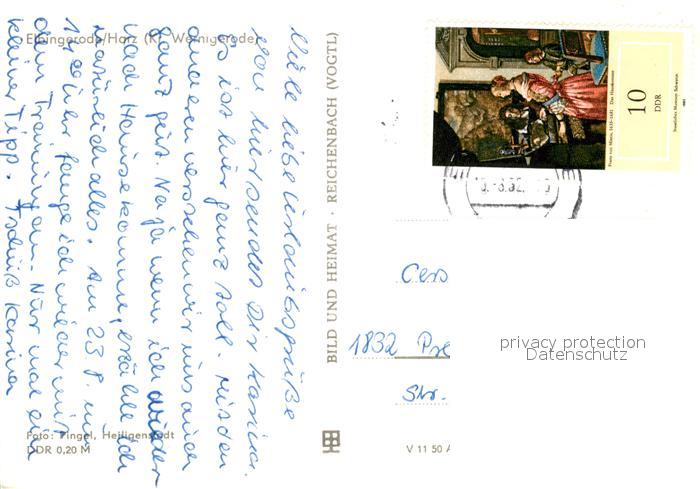 Elbingerode/Harz (Kr. Wernigerode)
Viele liebe Urlaubsgrüße
von hier sendet Dir Karina.
Es ist hier ganz toll. Mit den
anderen verstehen wir uns auch
ganz gut. Na ja wenn ich wieder
nach Hause komme, erzähle ich
natürlich alles. Am 23.8. um
17 00 Uhr fange ich wieder mit
dem Training an. Nur mal ein
kleiner Tipp. Tschüß Karina
Foto: Pingel, Heiligenstadt
DDR 0,20 M
BILD UND HEIMAT · REICHENBACH (VOGTL)
V 11 50 A
10
DDR
Frans van Mieris, 1635-1681
Staatliches Museum Schwerin
1832 Pre
Str.
privacy protection
Datenschutz